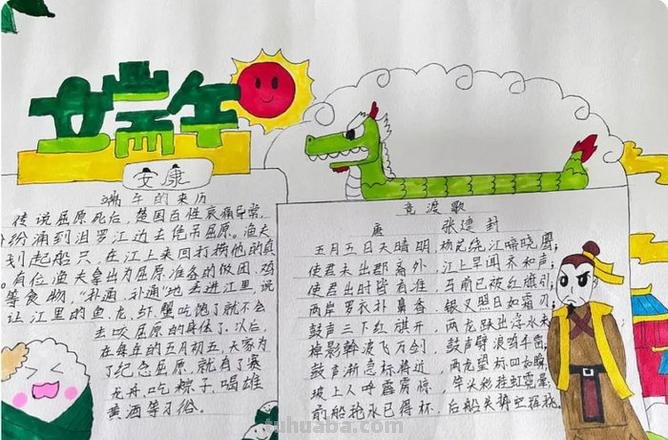 端午
安康
端午的来历
传说屈原死后,楚国百姓哀痛异常,
纷涌到汨罗江边去凭吊屈原。渔夫
划起船只,在江上来回打捞他的真
有位渔夫拿出为屈原准备的饭团、鸡
等食物,“扑通、扑通”地丢进江里,说
让江里的鱼、龙、虾、蟹吃饱了就不会
去咬屈原的身体了。以后,
在每年的五月初五,大家为
了纪念屈原,就有了赛
龙舟,吃粽子,喝雄
黄酒等习俗。
竞渡歌
唐 张建封
五月五日天晴明,杨花绕江啼晓鹰;
使君未出郡斋外,江上早闻齐和声;
使君出时皆有准,马前已被红旗引;
两岸罗衣扑鼻香,银钗照日如霜刃;
鼓声三下红旗开,两龙跃出浮水来
棹影斡波飞万剑,鼓声劈浪鸣千雷;
鼓声渐急标将近,两龙望标目如瞬;
坡上人呼霹雳惊,竿头彩挂虹霓晕;
前船抢水已得标,后船失势空挥桡
tuhuaba.com